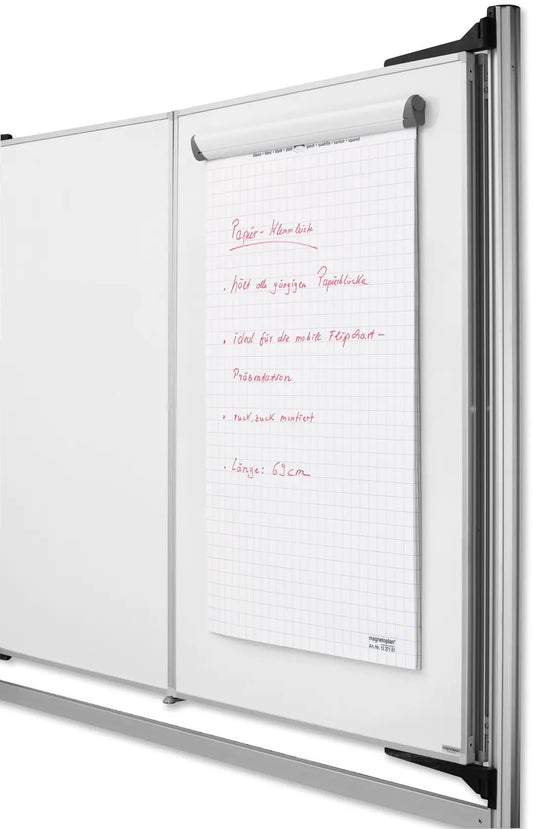 Papier-Klemmleiste
• hält alle gängigen Papierblöcke
• ideal für die mobile Flipchart-
Präsentation
• ruck, zuck montiert
• Länge: 69cm
magnetoplan